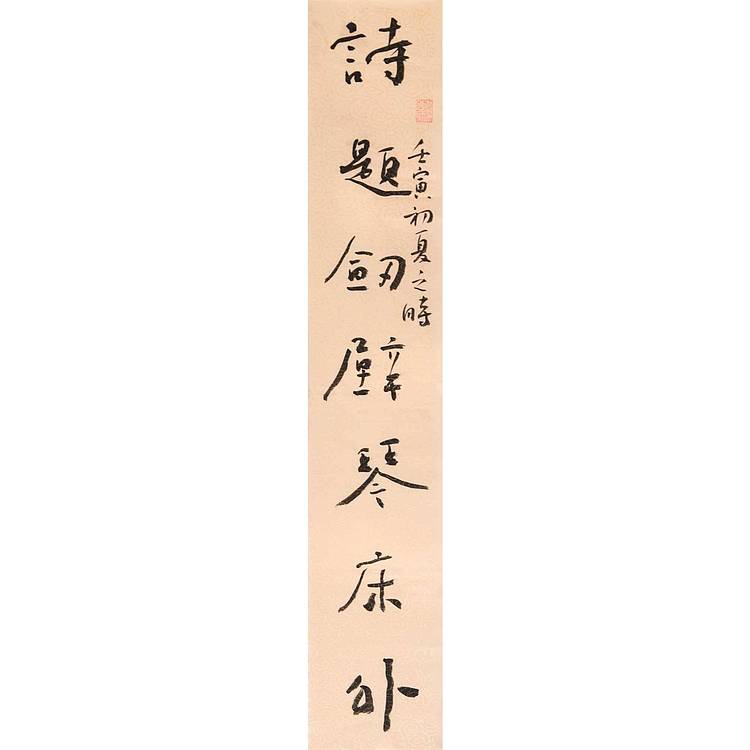 壬寅初夏之時
詩題剱壁琴床外